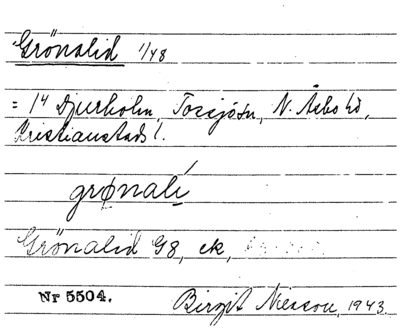 Grönalid 1/48
= 1⁴ Djurholm, Tossjö sn, N. Åsbo hd,
Kristianstads l.
grønalí
Grönalid G8, ek,
Nr 5504. Birgit Nilsson, 1943.